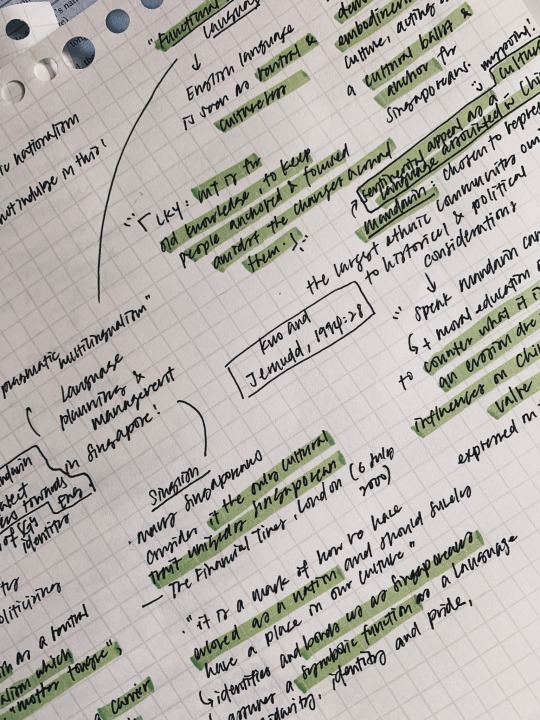 "functional
language
↓
English language
is seen as neutral &
cultureless
embodiment
culture, acting as
a cultural ballast &
anchor for
Singaporeans.
"LKY: MT is for
old knowledge, to keep
people anchored & focused
amidst the changes around
them."
sentimental appeal as a
language associated w Chi
culture
Mandarin: chosen to repre
the largest ethnic community
to historical & political
considerations
↓
Kuo and
Jernudd, 1994:28
spent mandarin
+ moral education
to counter what
an erosion
influences on Chi
value
expressed in
ic nationalism
not indulge in this!
pragmatic multilingualism"
language
planning &
management
in Singapore!
Mandarin
towards
Eng
identity
Singlish
• many Singaporeans
consider it the only cultural
trait unifies Singaporean
— The Financial Times, London (6 July
2000)
• "it is a mark of how we have
evolved as a nation and should surely
have a place in our culture"
↳ identities and bonds us as Singaporeans
assumes a symbolic function as a language
identity and pride,
politicising
as a neutral
which
"mother tongue",
carrier